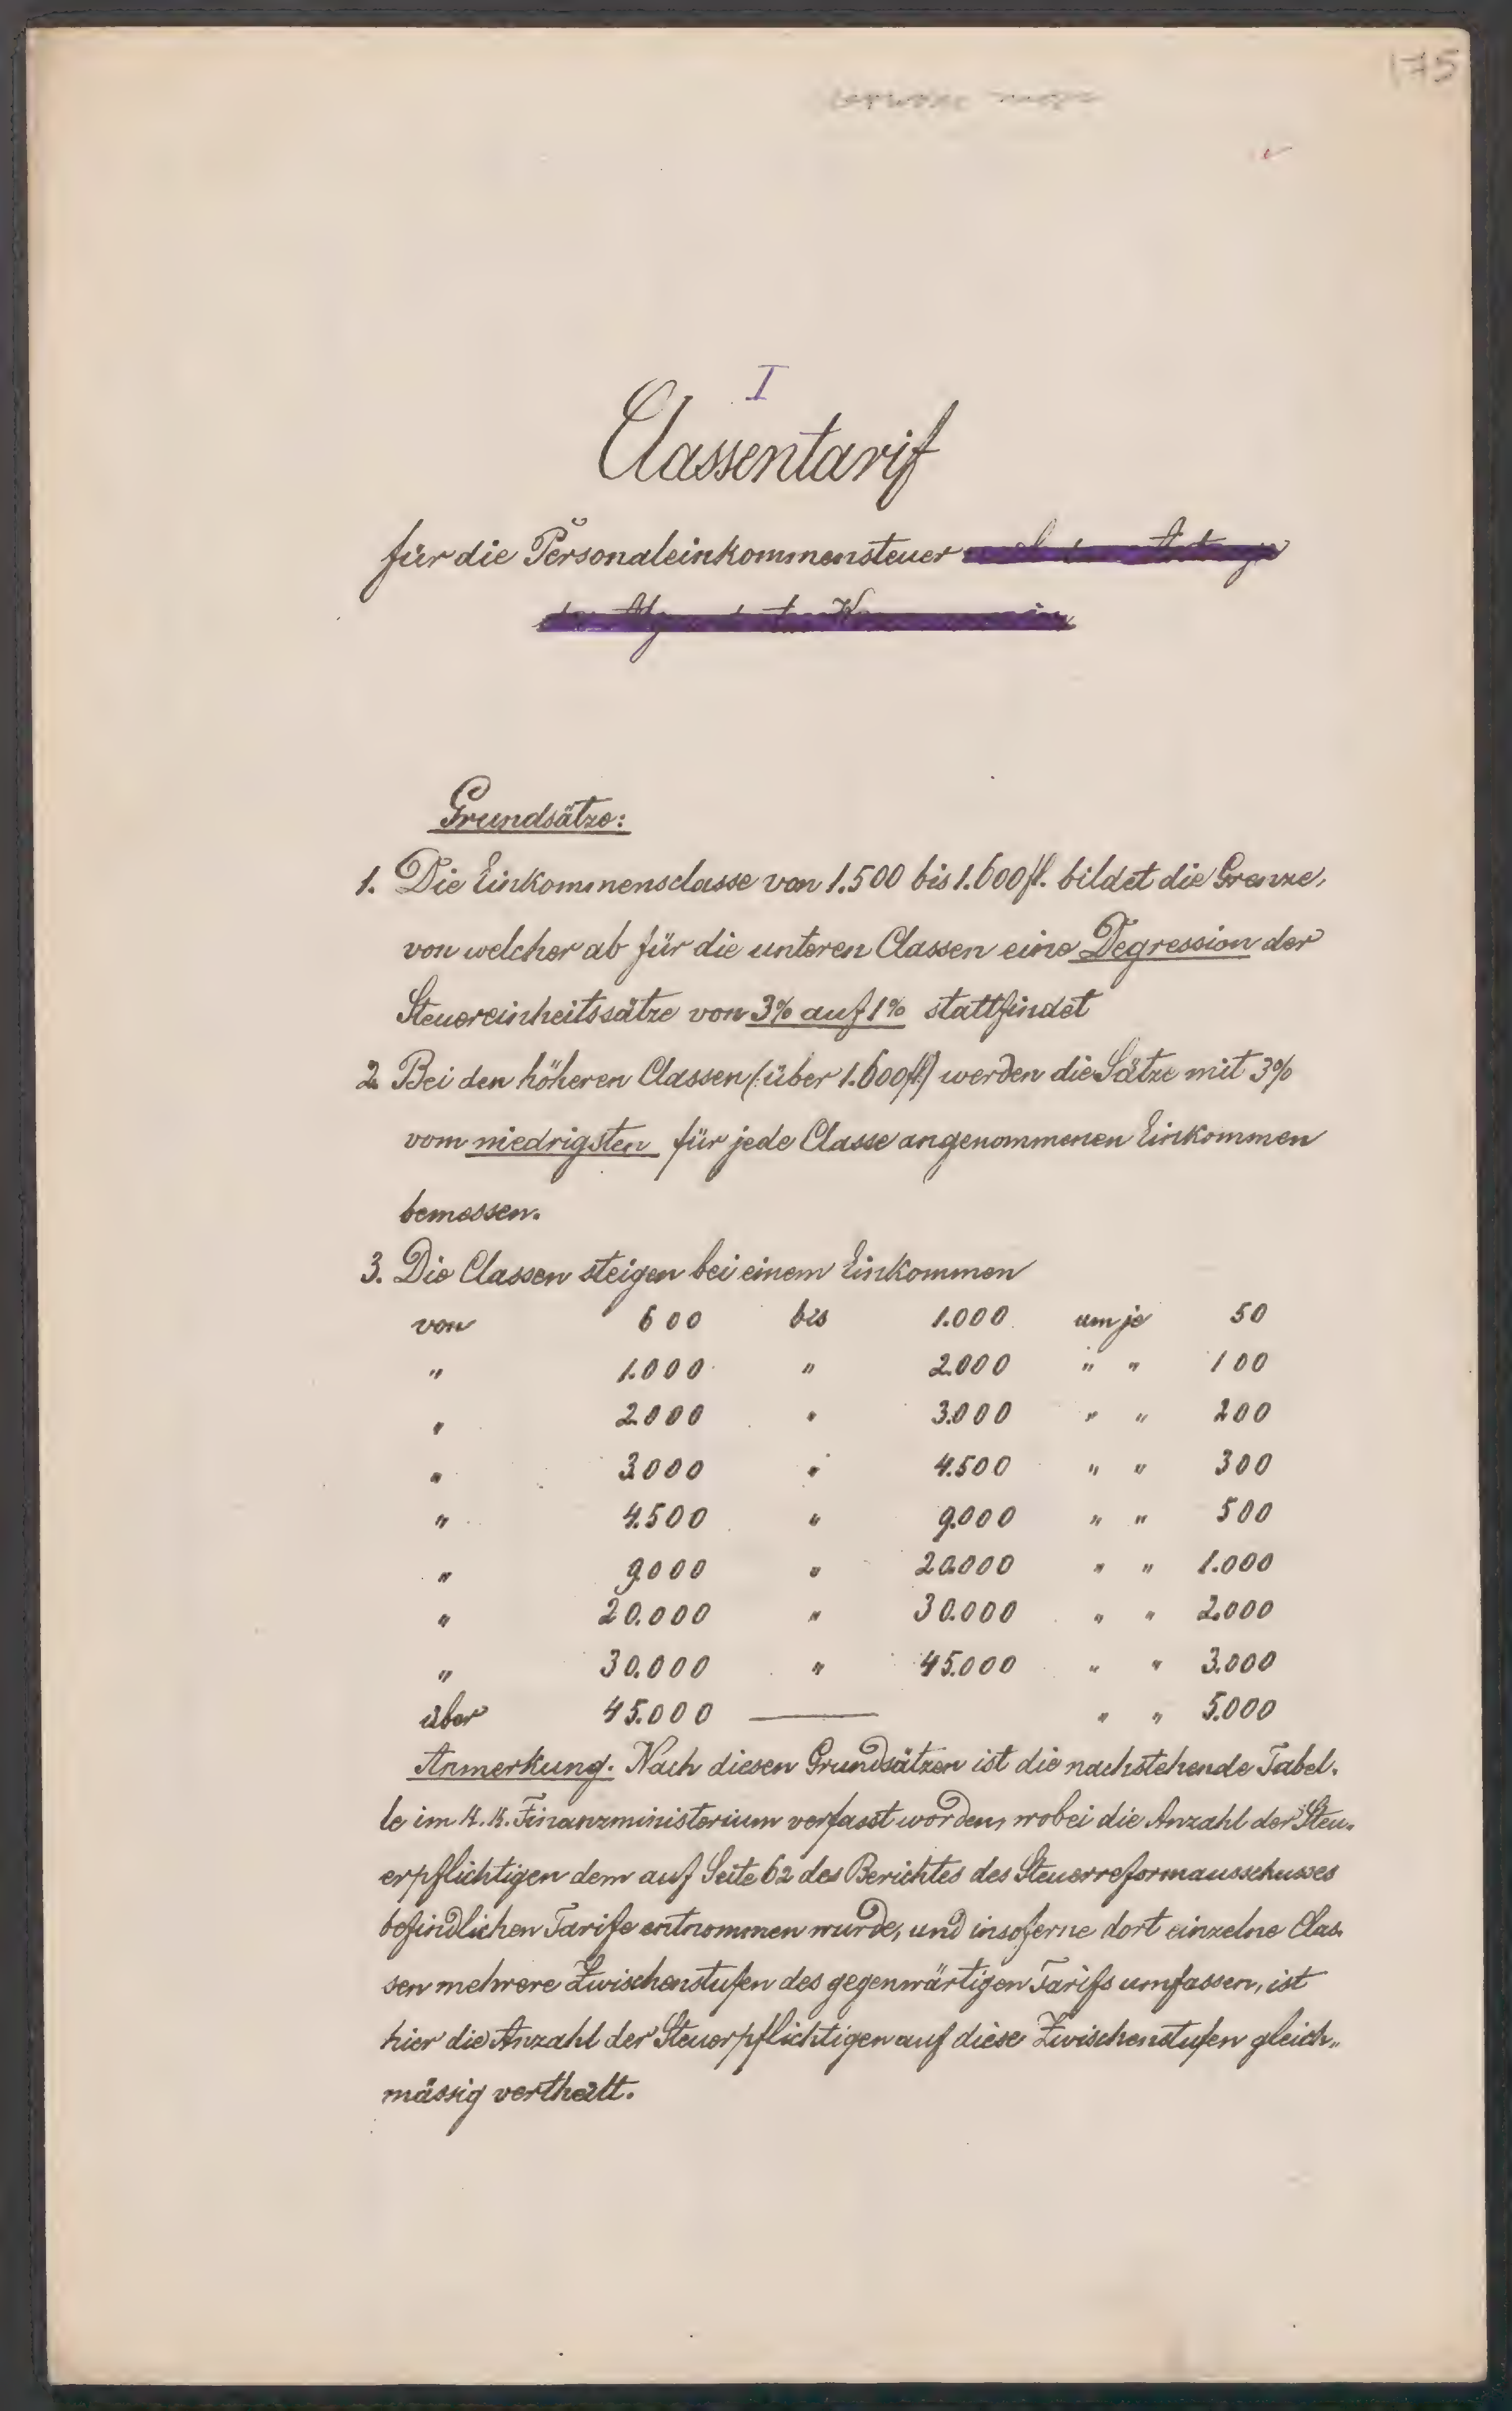 175
I
Classentarif
für die Personaleinkommensteuer
Grundsätze:
1. Die Einkommensclasse von 1.500 bis 1.600 fl. bildet die Grenze,
von welcher ab für die unteren Classen eine Degression der
Steuereinheitssätze von 3% auf 1% stattfindet
2. Bei den höheren Classen (:über 1.600 fl:) werden die Sätze mit 3%
vom niedrigsten für jede Classe angenommenen Einkommen
bemessen.
3. Die Classen steigen bei einem Einkommen
von 600 bis 1.000 um je 50
" 1.000 " 2.000 " " 100
" 2.000 " 3.000 " " 200
" 3000 " 4.500 " " 300
" 4.500 " 9.000 " " 500
" 9.000 " 20.000 " " 1.000
" 20.000 " 30.000 " " 2.000
" 30.000 " 45.000 " " 3.000
über 45.000 — " " 5.000
Anmerkung. Nach diesen Grundsätzen ist die nachstehende Tabel-
le im k. k. Finanzministerium verfasst worden, wobei die Anzahl der Steu-
erpflichtigen dem auf Seite 62 des Berichtes des Steuerreformausschusses
befindlichen Tarife entnommen wurde, und insoferne dort einzelne Clas-
sen mehrere Zwischenstufen des gegenwärtigen Tarifs umfassen, ist
hier die Anzahl der Steuerpflichtigen auf diese Zwischenstufen gleich-
mässig vertheilt.